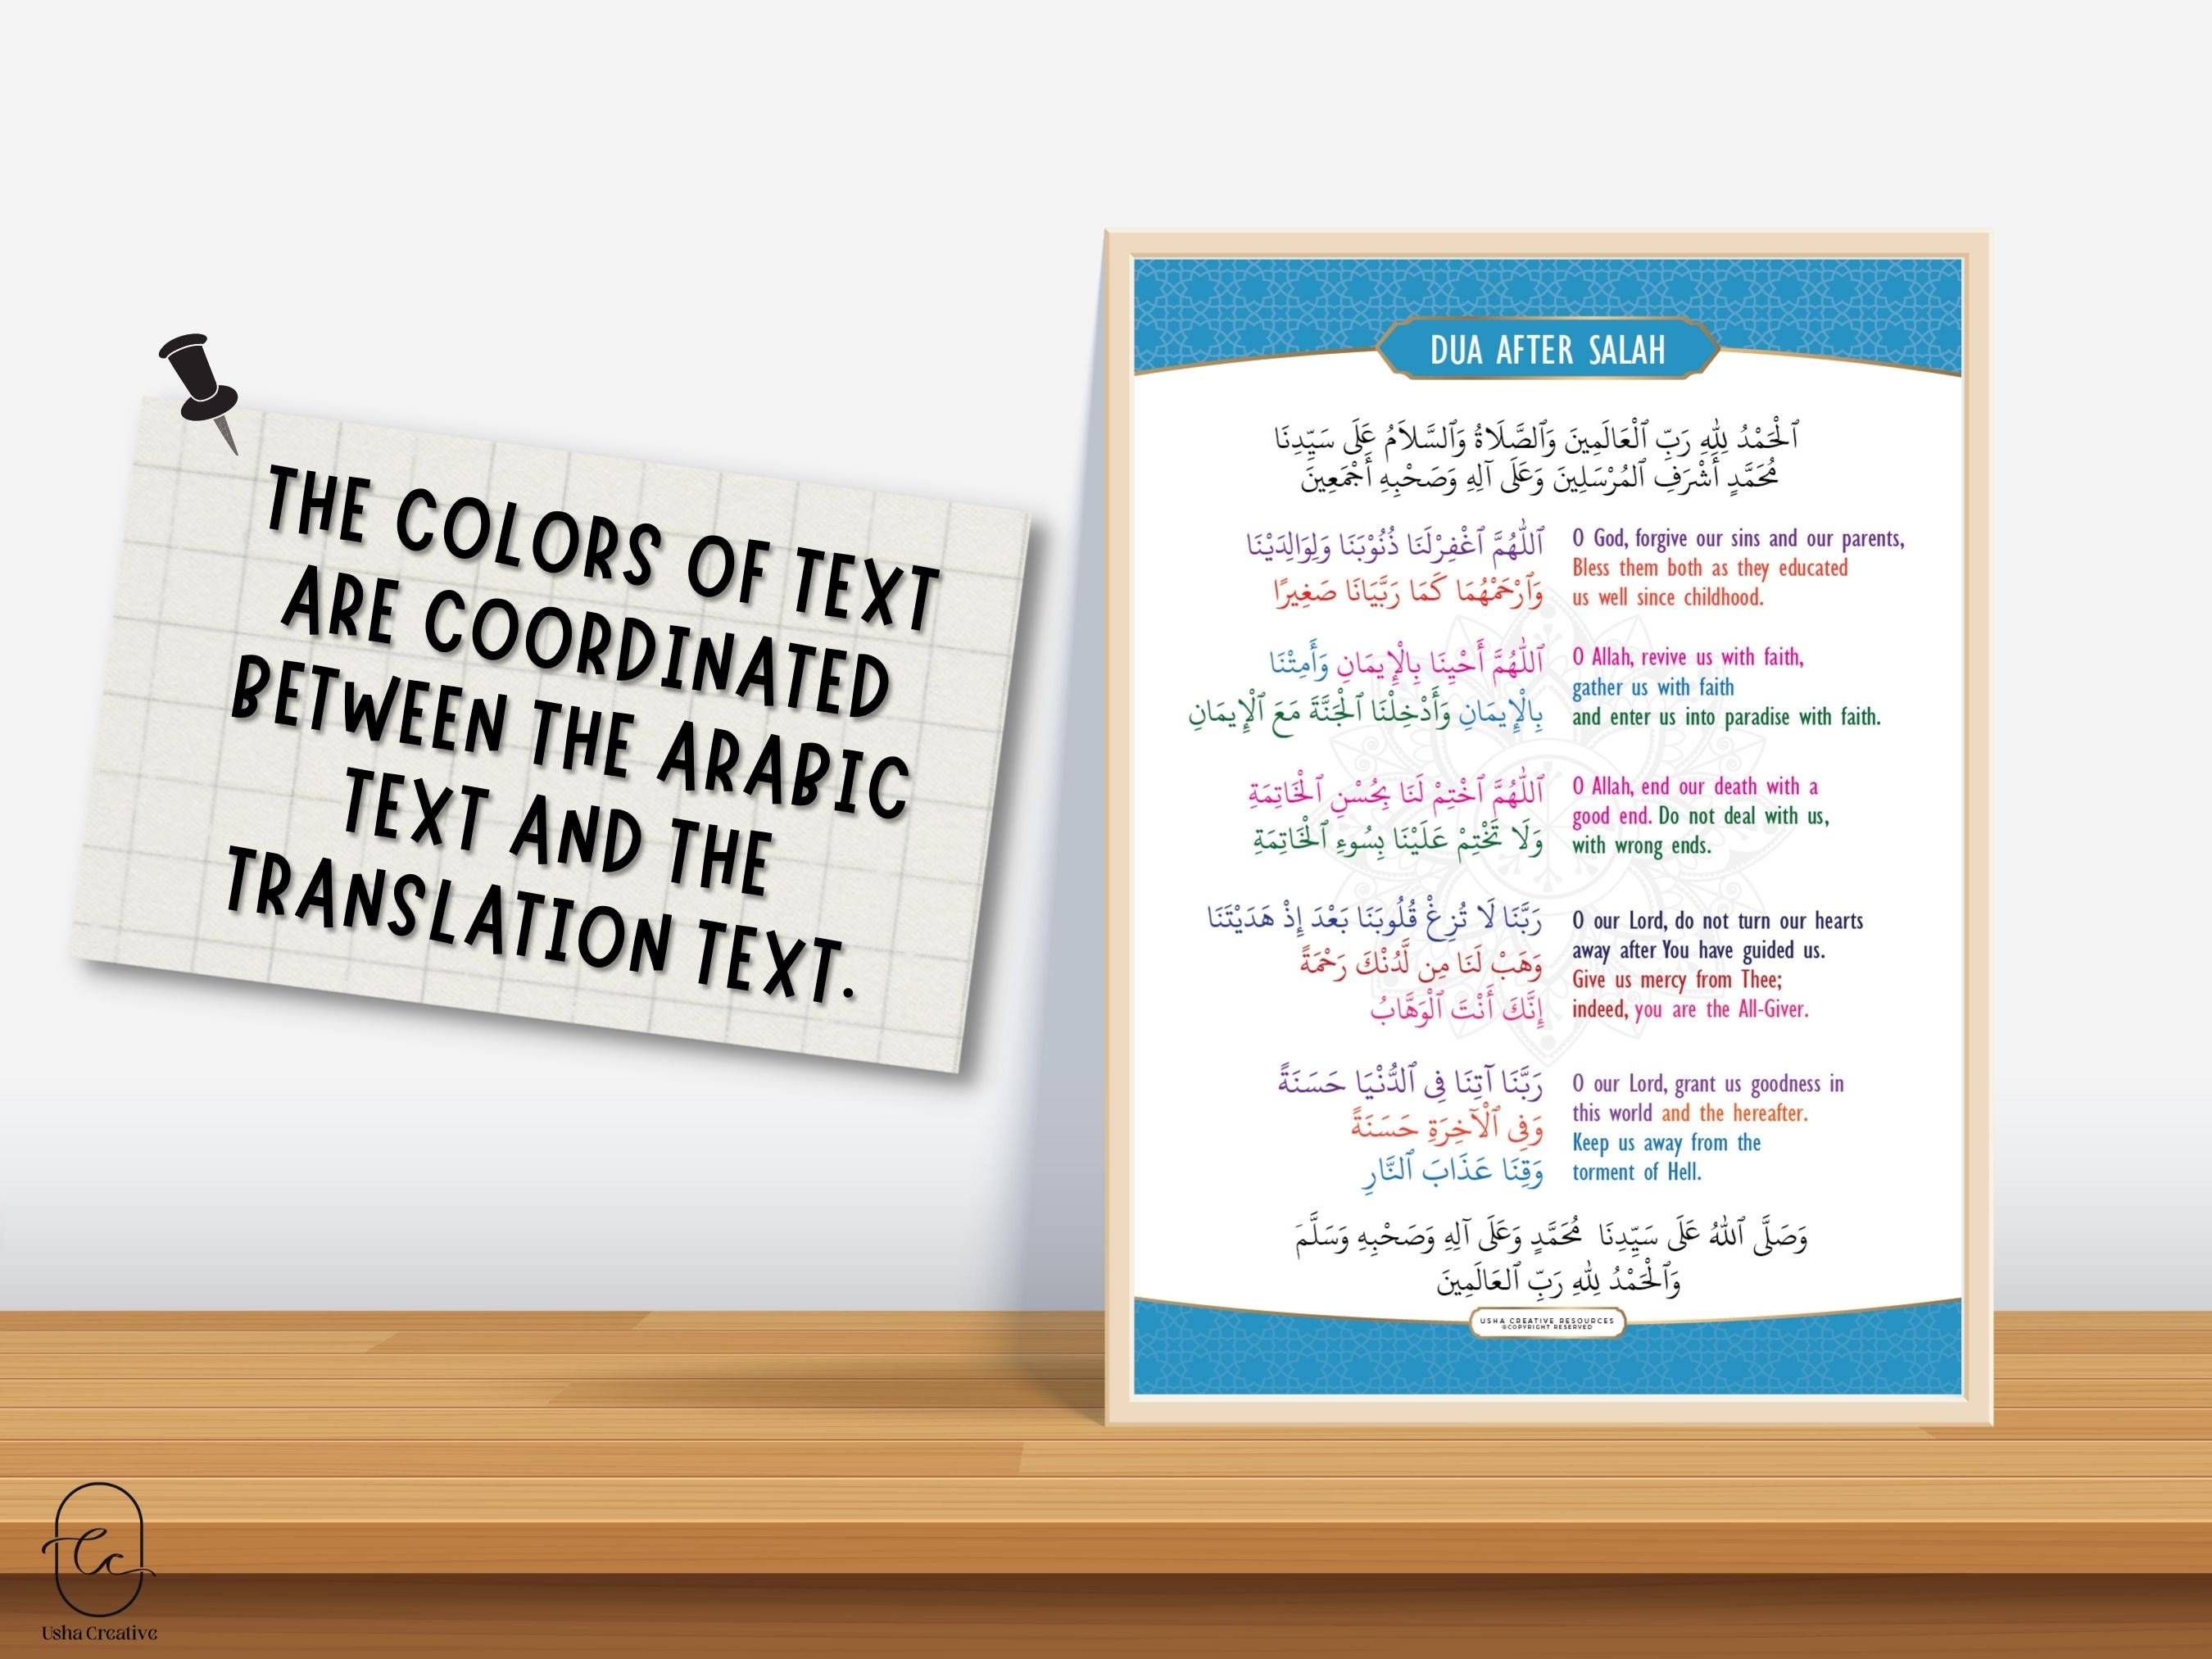 THE COLORS OF TEXT
ARE COORDINATED
BETWEEN THE ARABIC
TEXT AND THE
TRANSLATION TEXT.
DUA AFTER SALAH
ٱلْحَمْدُ لِلّٰهِ رَبِّ ٱلْعَالَمِينَ وَٱلصَّلَاةُ وَٱلسَّلَامُ عَلَى سَيِّدِنَا
مُحَمَّدٍ أَشْرَفِ ٱلمُرْسَلِينَ وَعَلَى آلِهِ وَصَحْبِهِ أَجْمَعِينَ
ٱللّٰهُمَّ ٱغْفِرْلَنَا ذُنُوْبَنَا وَلِوَالِدَيْنَا
وَٱرْحَمْهُمَا كَمَا رَبَّيَانَا صَغِيرًا
O God, forgive our sins and our parents,
Bless them both as they educated
us well since childhood.
ٱللّٰهُمَّ أَحْيِنَا بِالْإِيمَانِ وَأَمِتْنَا
بِالْإِيمَانِ وَأَدْخِلْنَا ٱلْجَنَّةَ مَعَ ٱلْإِيمَانِ
O Allah, revive us with faith,
gather us with faith
and enter us into paradise with faith.
ٱللّٰهُمَّ ٱخْتِمْ لَنَا بِحُسْنِ ٱلْخَاتِمَةِ
وَلَا تَخْتِمْ عَلَيْنَا بِسُوءِ ٱلْخَاتِمَةِ
O Allah, end our death with a
good end. Do not deal with us,
with wrong ends.
رَبَّنَا لَا تُزِغْ قُلُوبَنَا بَعْدَ إِذْ هَدَيْتَنَا
وَهَبْ لَنَا مِن لَّدُنْكَ رَحْمَةً
إِنَّكَ أَنْتَ ٱلْوَهَّابُ
O our Lord, do not turn our hearts
away after You have guided us.
Give us mercy from Thee;
indeed, you are the All-Giver.
رَبَّنَا آتِنَا فِى ٱلدُّنْيَا حَسَنَةً
وَفِى ٱلْآخِرَةِ حَسَنَةً
وَقِنَا عَذَابَ ٱلنَّارِ
O our Lord, grant us goodness in
this world and the hereafter.
Keep us away from the
torment of Hell.
وَصَلَّى ٱللّٰهُ عَلَى سَيِّدِنَا مُحَمَّدٍ وَعَلَى آلِهِ وَصَحْبِهِ وَسَلَّمَ
وَٱلْحَمْدُ لِلّٰهِ رَبِّ ٱلعَالَمِينَ
USHA CREATIVE RESOURCES
©COPYRIGHT RESERVED
Usha Creative